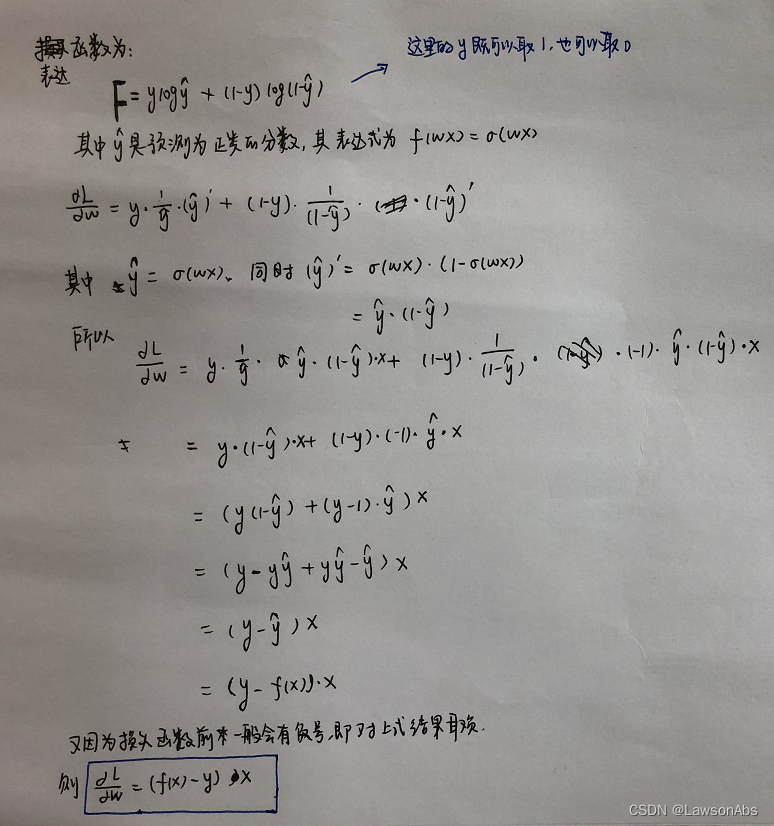 函数为:
这里的y既可以取1,也可以取0
表达
F = y log ŷ + (1-y) log(1-ŷ)
其中 ŷ 是预测为正类的分数,其表达式为 f(wx) = σ(wx)
∂L/∂w = y · 1/ŷ · (ŷ)' + (1-y) · 1/(1-ŷ) · (1-ŷ)'
其中 ŷ = σ(wx)、同时 (ŷ)' = σ(wx) · (1-σ(wx))
= ŷ · (1-ŷ)
所以
∂L/∂w = y · 1/ŷ · ŷ · (1-ŷ)·x + (1-y) · 1/(1-ŷ) · (-1) · ŷ · (1-ŷ) · x
= y · (1-ŷ)·x + (1-y) · (-1) · ŷ · x
= (y(1-ŷ) + (y-1) · ŷ) x
= (y - yŷ + yŷ - ŷ) x
= (y - ŷ) x
= (y - f(x)) · x
又因为损失函数前来一般会有负号,即对上式结果取项.
则 ∂L/∂w = (f(x) - y) x
CSDN @LawsonAbs